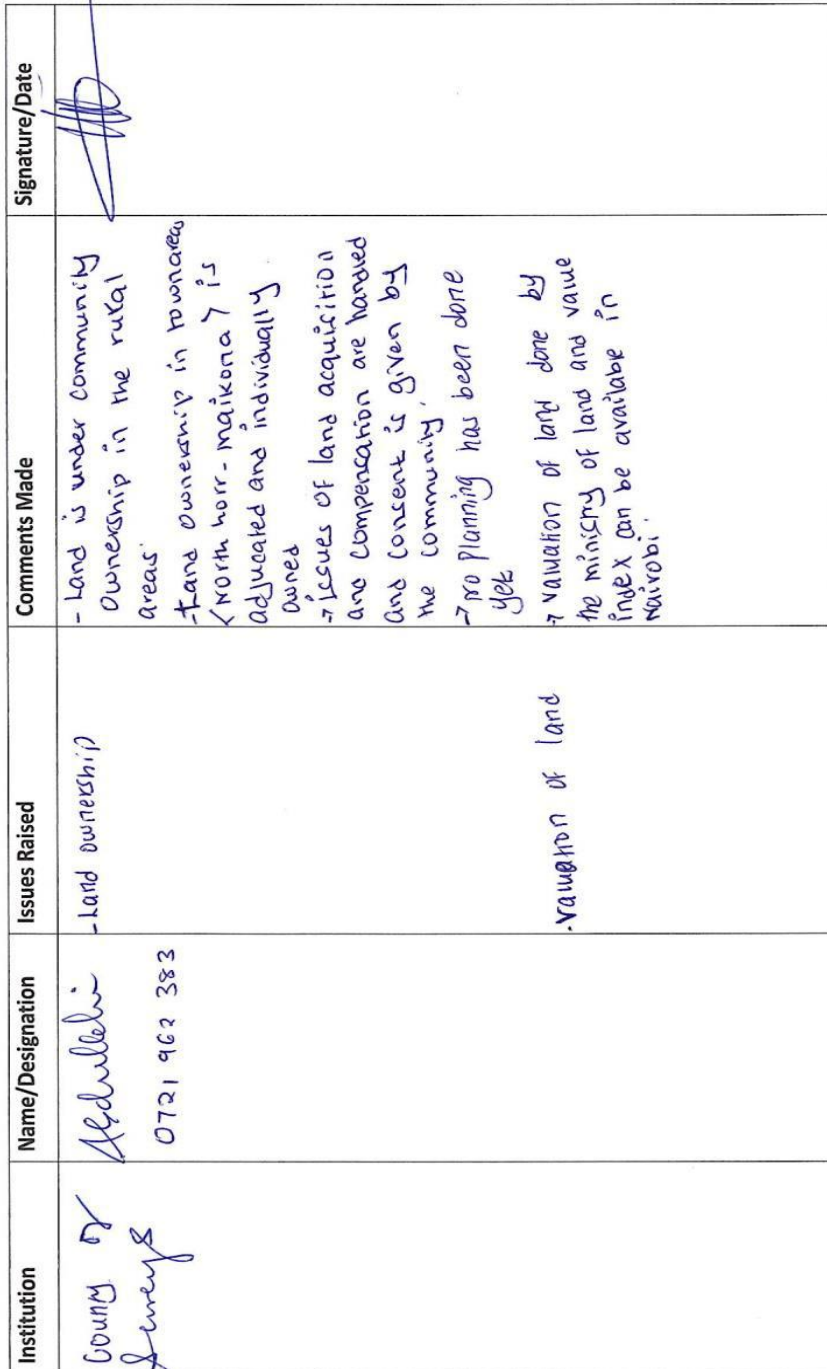 Institution
Name/Designation
Issues Raised
Comments Made
Signature/Date
County of
Surveys
Abdullahi
0721 962 383
- Land ownership
- Land is under community
Ownership in the rural
areas.
- Land ownership in town areas
<North horr - maikona> is
adjucated and individually
owned
→ issues of land acquisition
and compensation are handled
and consent is given by
the community.
→ no planning has been done
yet
- Valuation of land
→ Valuation of land done by
the ministry of land and value
index can be available in
Nairobi.